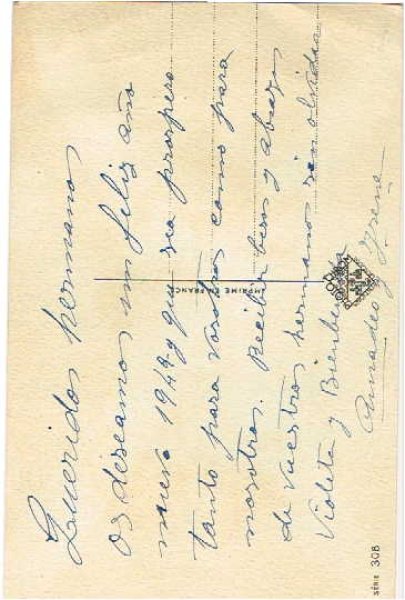 Queridos hermanos
os deseamos un feliz año
nuevo 1949 y que sea prospero
tanto para vosotros como para
nosotros. Recibir besos y abrazos
de vuestros hermanos sin olvidar
Violeta y Bienbenido
Amadeo y Irene
IMPRIMÉ EN FRANCE
SÉRIE 308